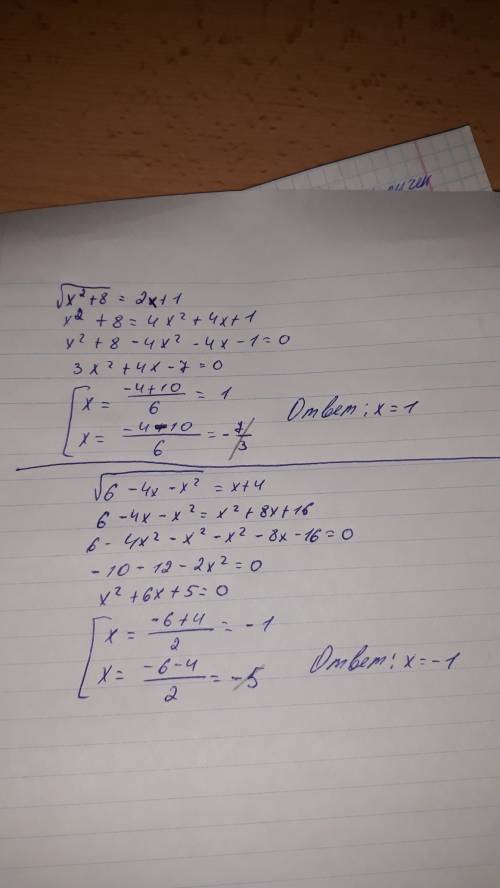 √x²+8 = 2x+1
x² + 8 = 4x² + 4x + 1
x² + 8 - 4x² - 4x - 1 = 0
3x² + 4x - 7 = 0
x = (-4+10)/6 = 1
x = (-4-10)/6 = -7/3
Ответ: x = 1
√6 - 4x - x² = x + 4
6 - 4x - x² = x² + 8x + 16
6 - 4x² - x² - x² - 8x - 16 = 0
-10 - 12 - 2x² = 0
x² + 6x + 5 = 0
x = (-6+4)/2 = -1
x = (-6-4)/2 = -5
Ответ: x = -1